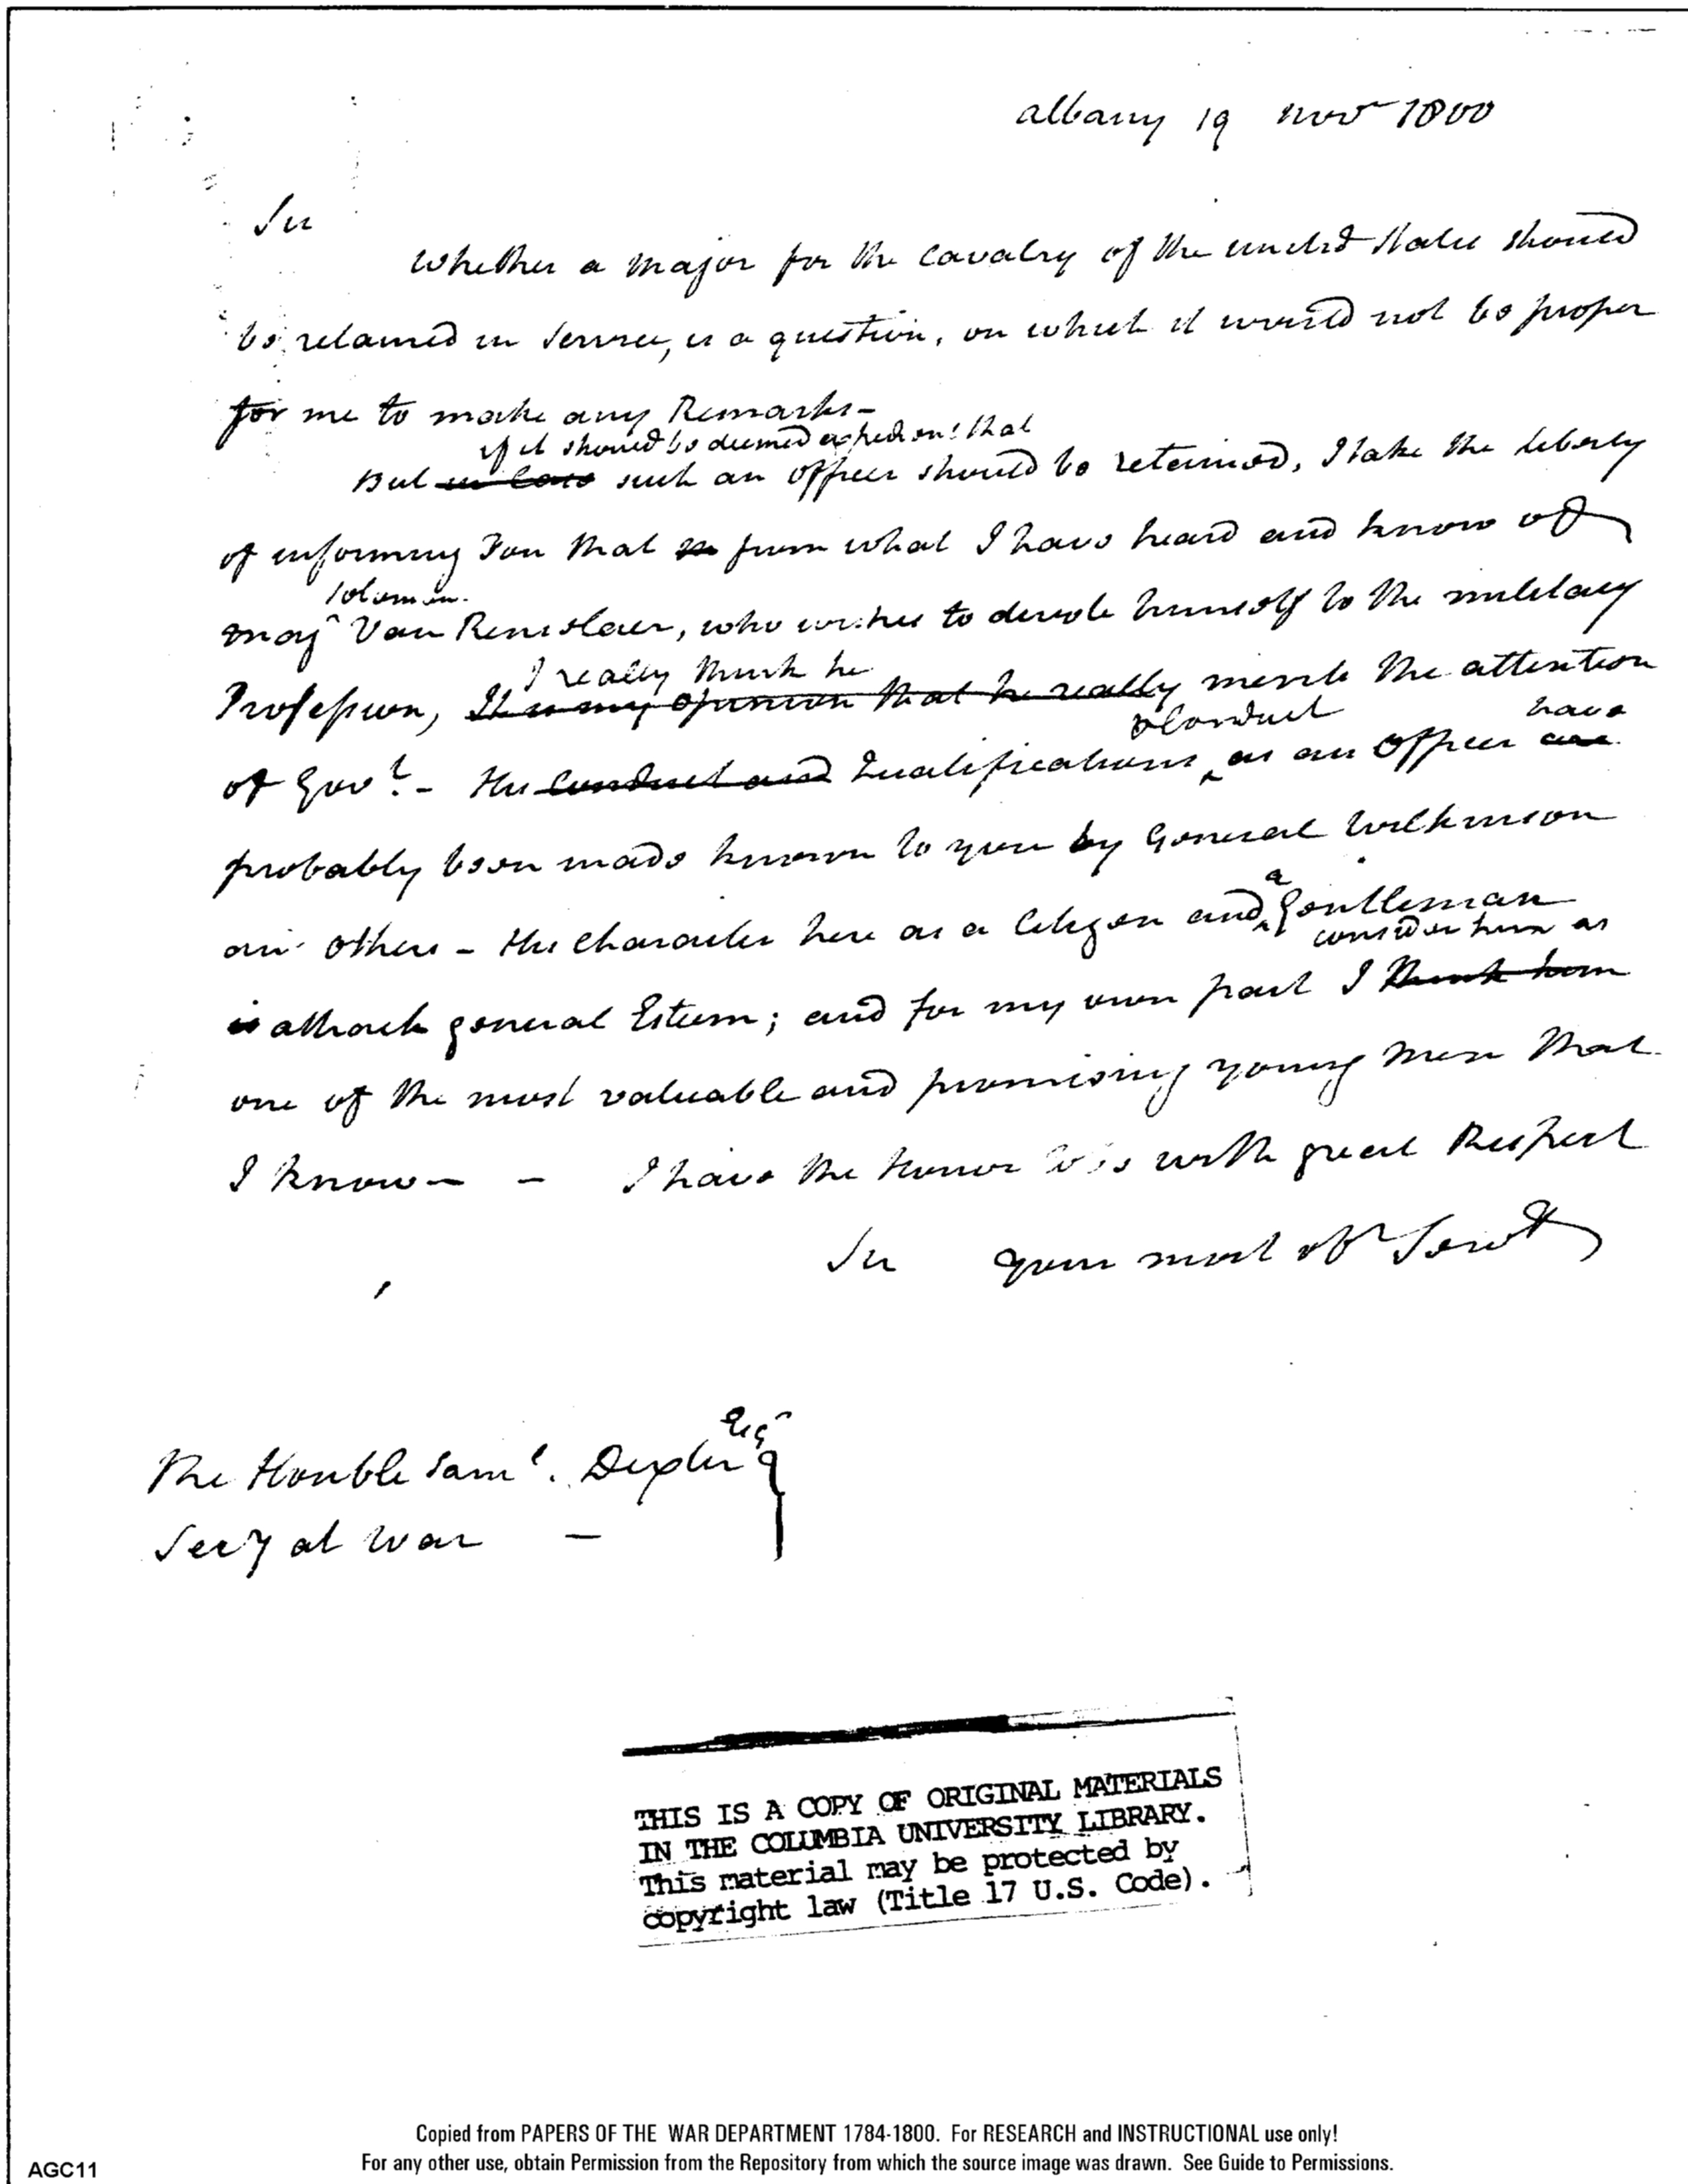 albany 19 Novr 1800
Sir
Whether a Major for the Cavalry of the united States should
be retained in Service, is a question, on which it would not be proper
for me to make any Remarks-
if it should be deemed expedient that
But in Case such an Officer should be retained, I take the liberty
of informing You that from what I have heard and know of
Solomon
Majr Van Renselaer, who wishes to devote himself to the military
I really think he
Profession, It is my opinion that he really merits the attention
& Conduct have
of Govt. - His Conduct and Qualifications ^ as an Officer are
probably been made known to you by General Wilkinson
and others - His Character here as a Citizen and ^ a Gentleman
consider him as
is attracts general Esteem; and for my own part I think him
one of the most valuable and promising young Men that
I know - - I have the Honor to be with great Respect
Sir your most obt Servt
Esqr
The Honble Saml. Dexter
Secy at War -
THIS IS A COPY OF ORIGINAL MATERIALS
IN THE COLUMBIA UNIVERSITY LIBRARY.
This material may be protected by
copyright law (Title 17 U.S. Code).
Copied from PAPERS OF THE WAR DEPARTMENT 1784-1800. For RESEARCH and INSTRUCTIONAL use only!
AGC11 For any other use, obtain Permission from the Repository from which the source image was drawn. See Guide to Permissions.